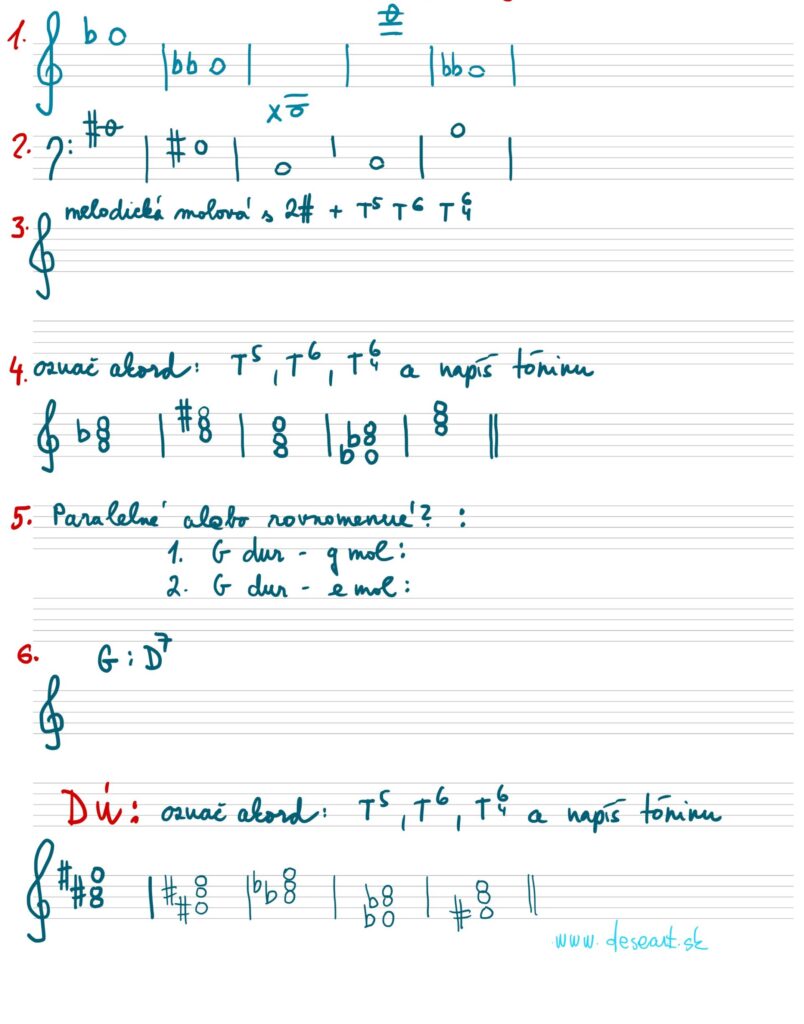 1.
2.
3. melodická molová s 2# + T5 T6 T6/4
4. označ akord: T5, T6, T6/4 a napíš tóninu
5. Paralelné alebo rovnomenné? :
1. G dur - g mol:
2. G dur - e mol:
6. G: D7
DÚ: označ akord: T5, T6, T6/4 a napíš tóninu
www.deseart.sk